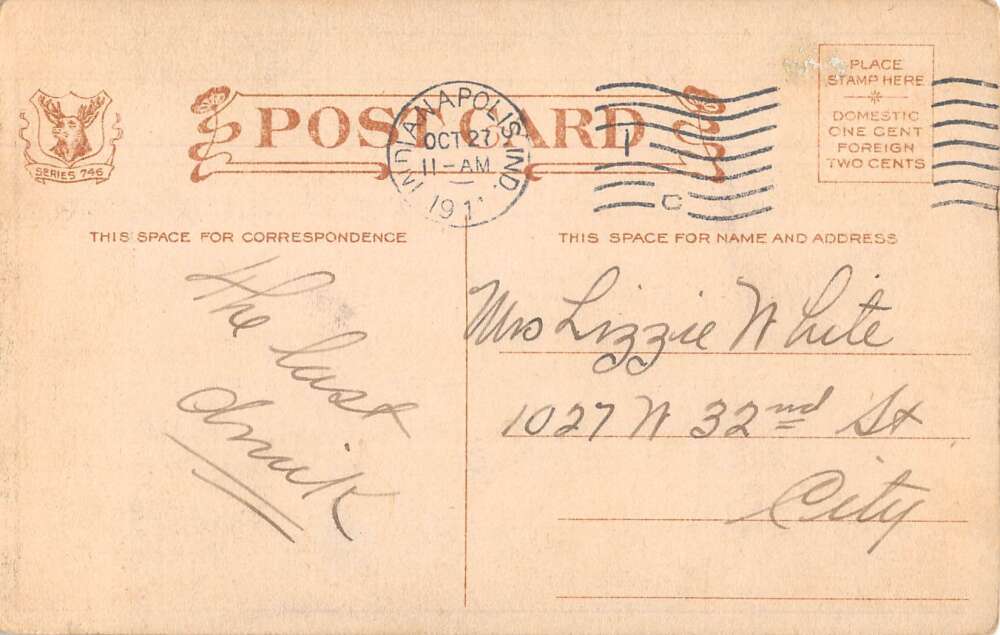 POST CARD
SERIES 746
INDIANAPOLIS, IND.
OCT 27
11-AM
191
PLACE
STAMP HERE
DOMESTIC
ONE CENT
FOREIGN
TWO CENTS
THIS SPACE FOR CORRESPONDENCE
The last
drink
THIS SPACE FOR NAME AND ADDRESS
Mrs Lizzie White
1027 W 32nd St
City